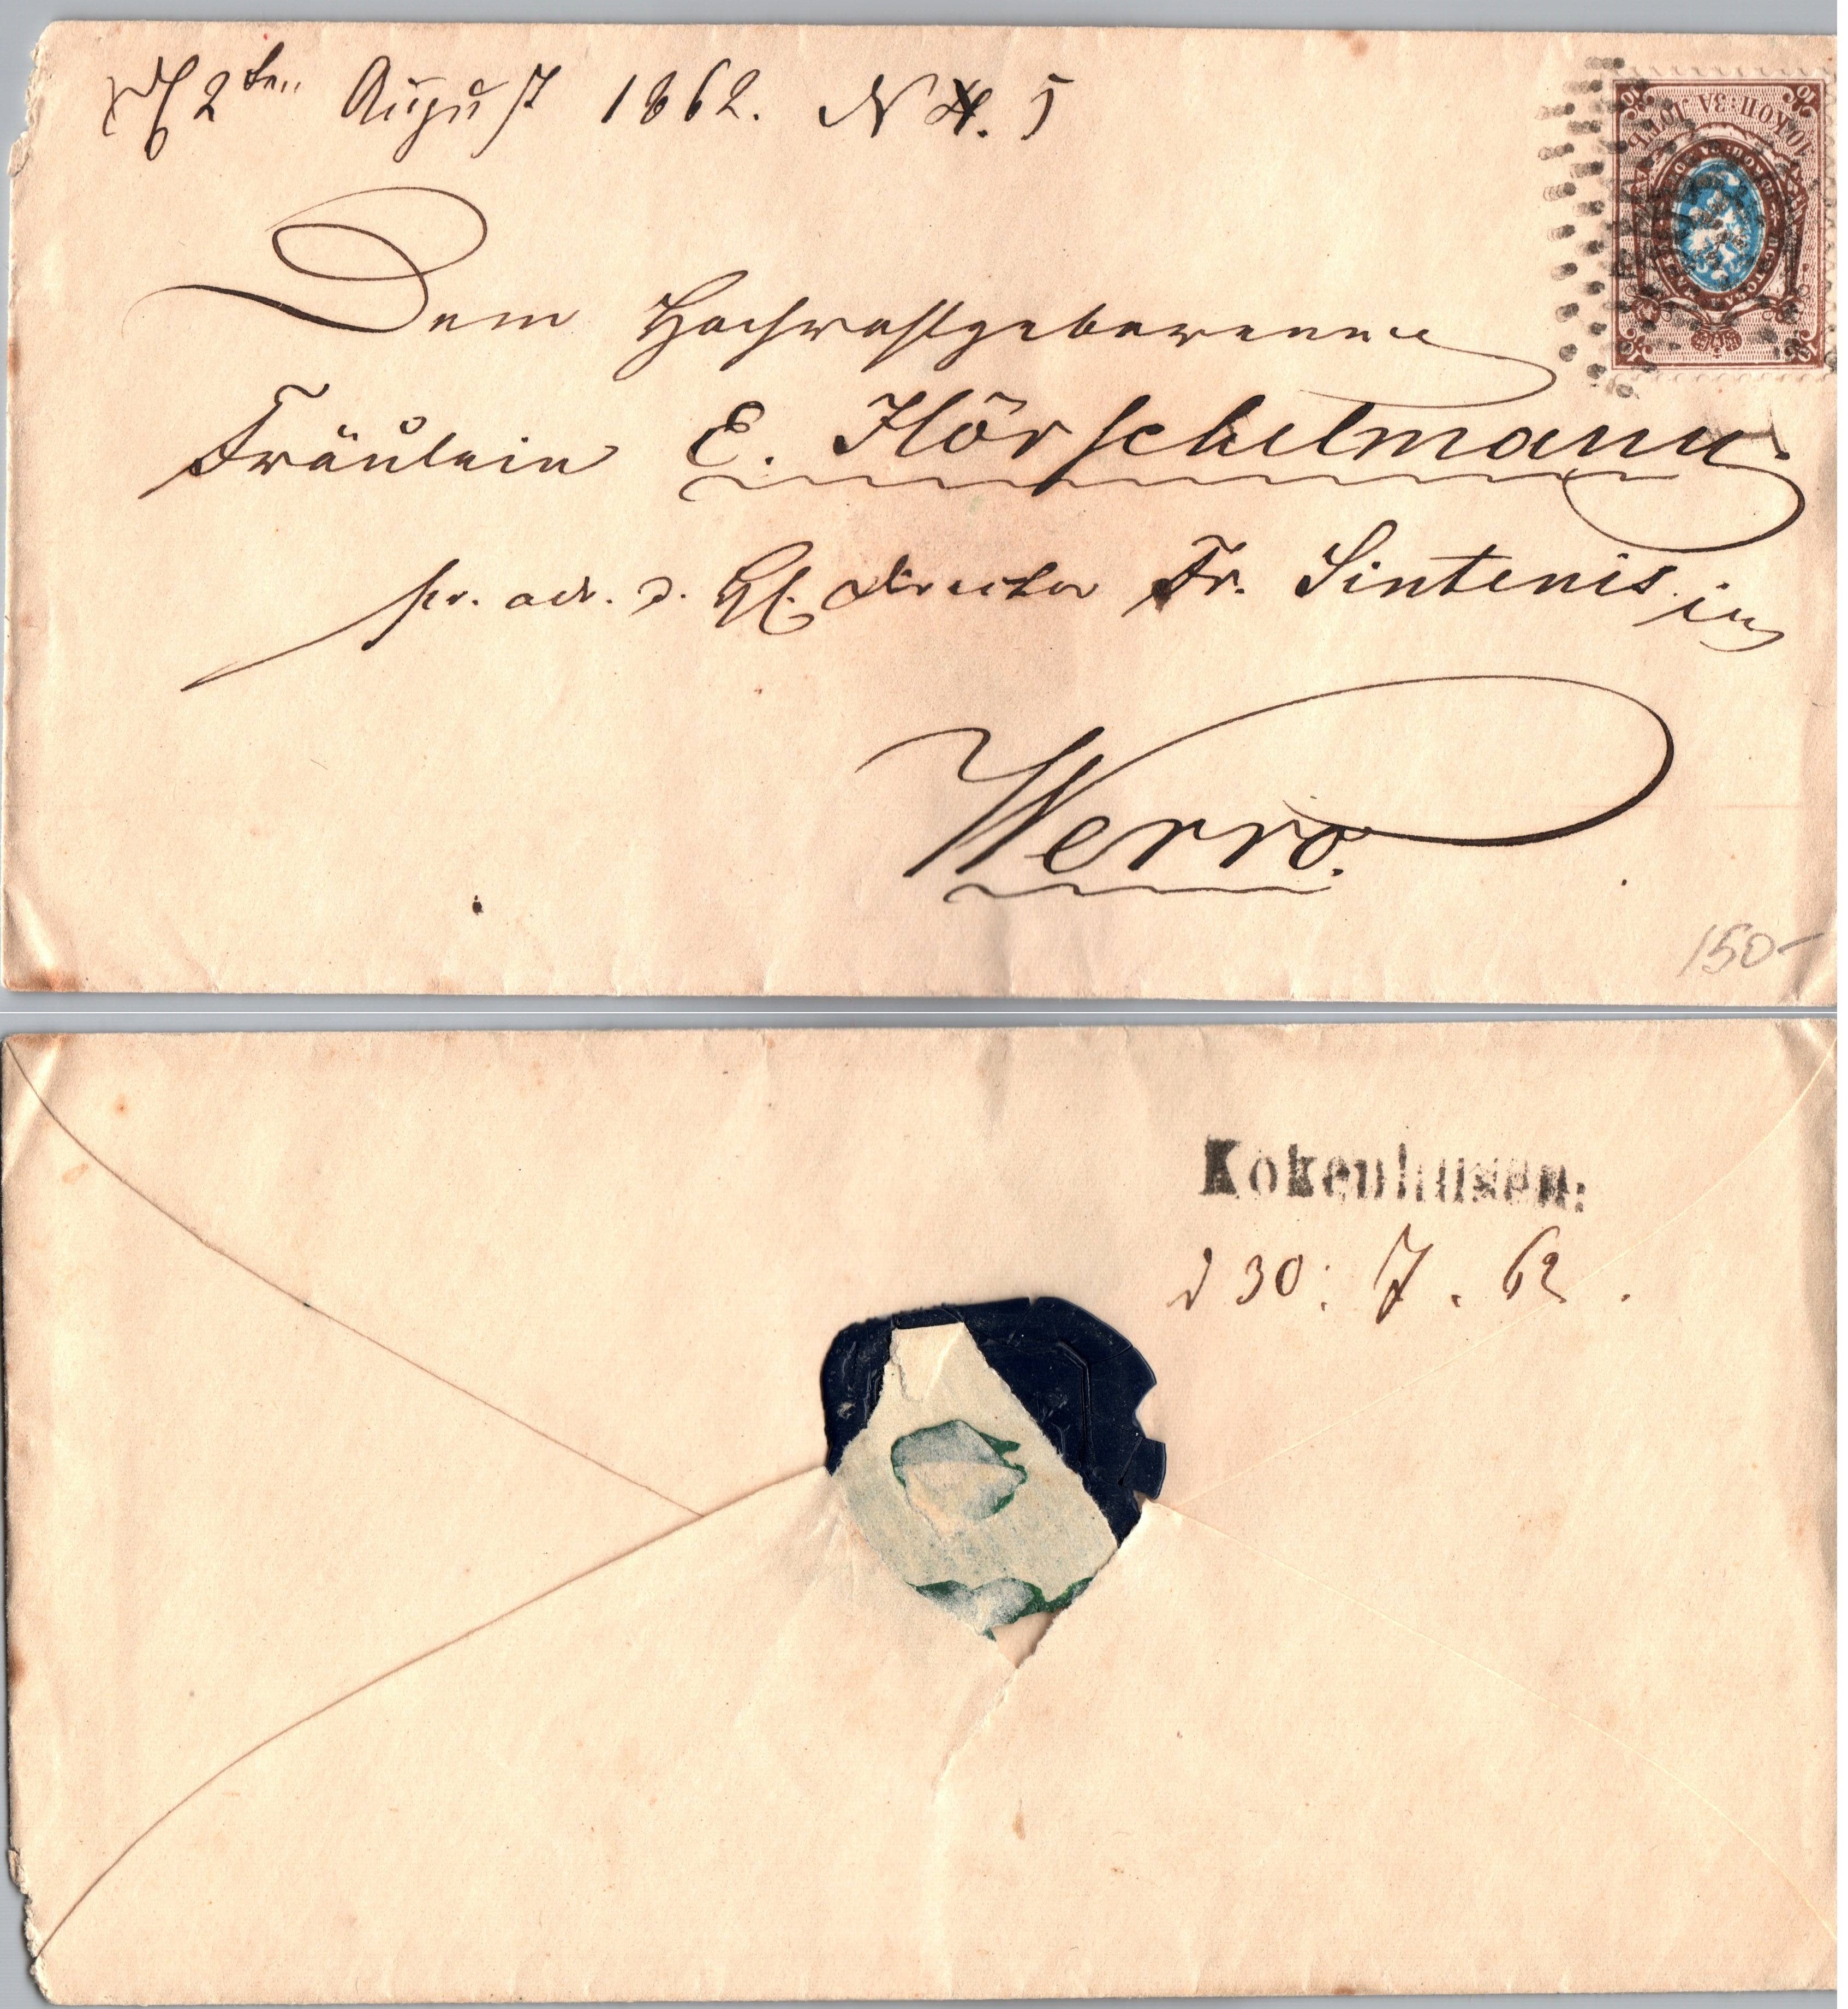 2ten August 1862. N 5
10 КОП: ЗА ЛОТЪ
Dem Hochwohlgeborenen
Fräulein E. Hörschelmann.
pr. adr. d. H. Director Fr. Sintenis in
Werro.
150-
Kokenhusen:
d 30: 7. 62.